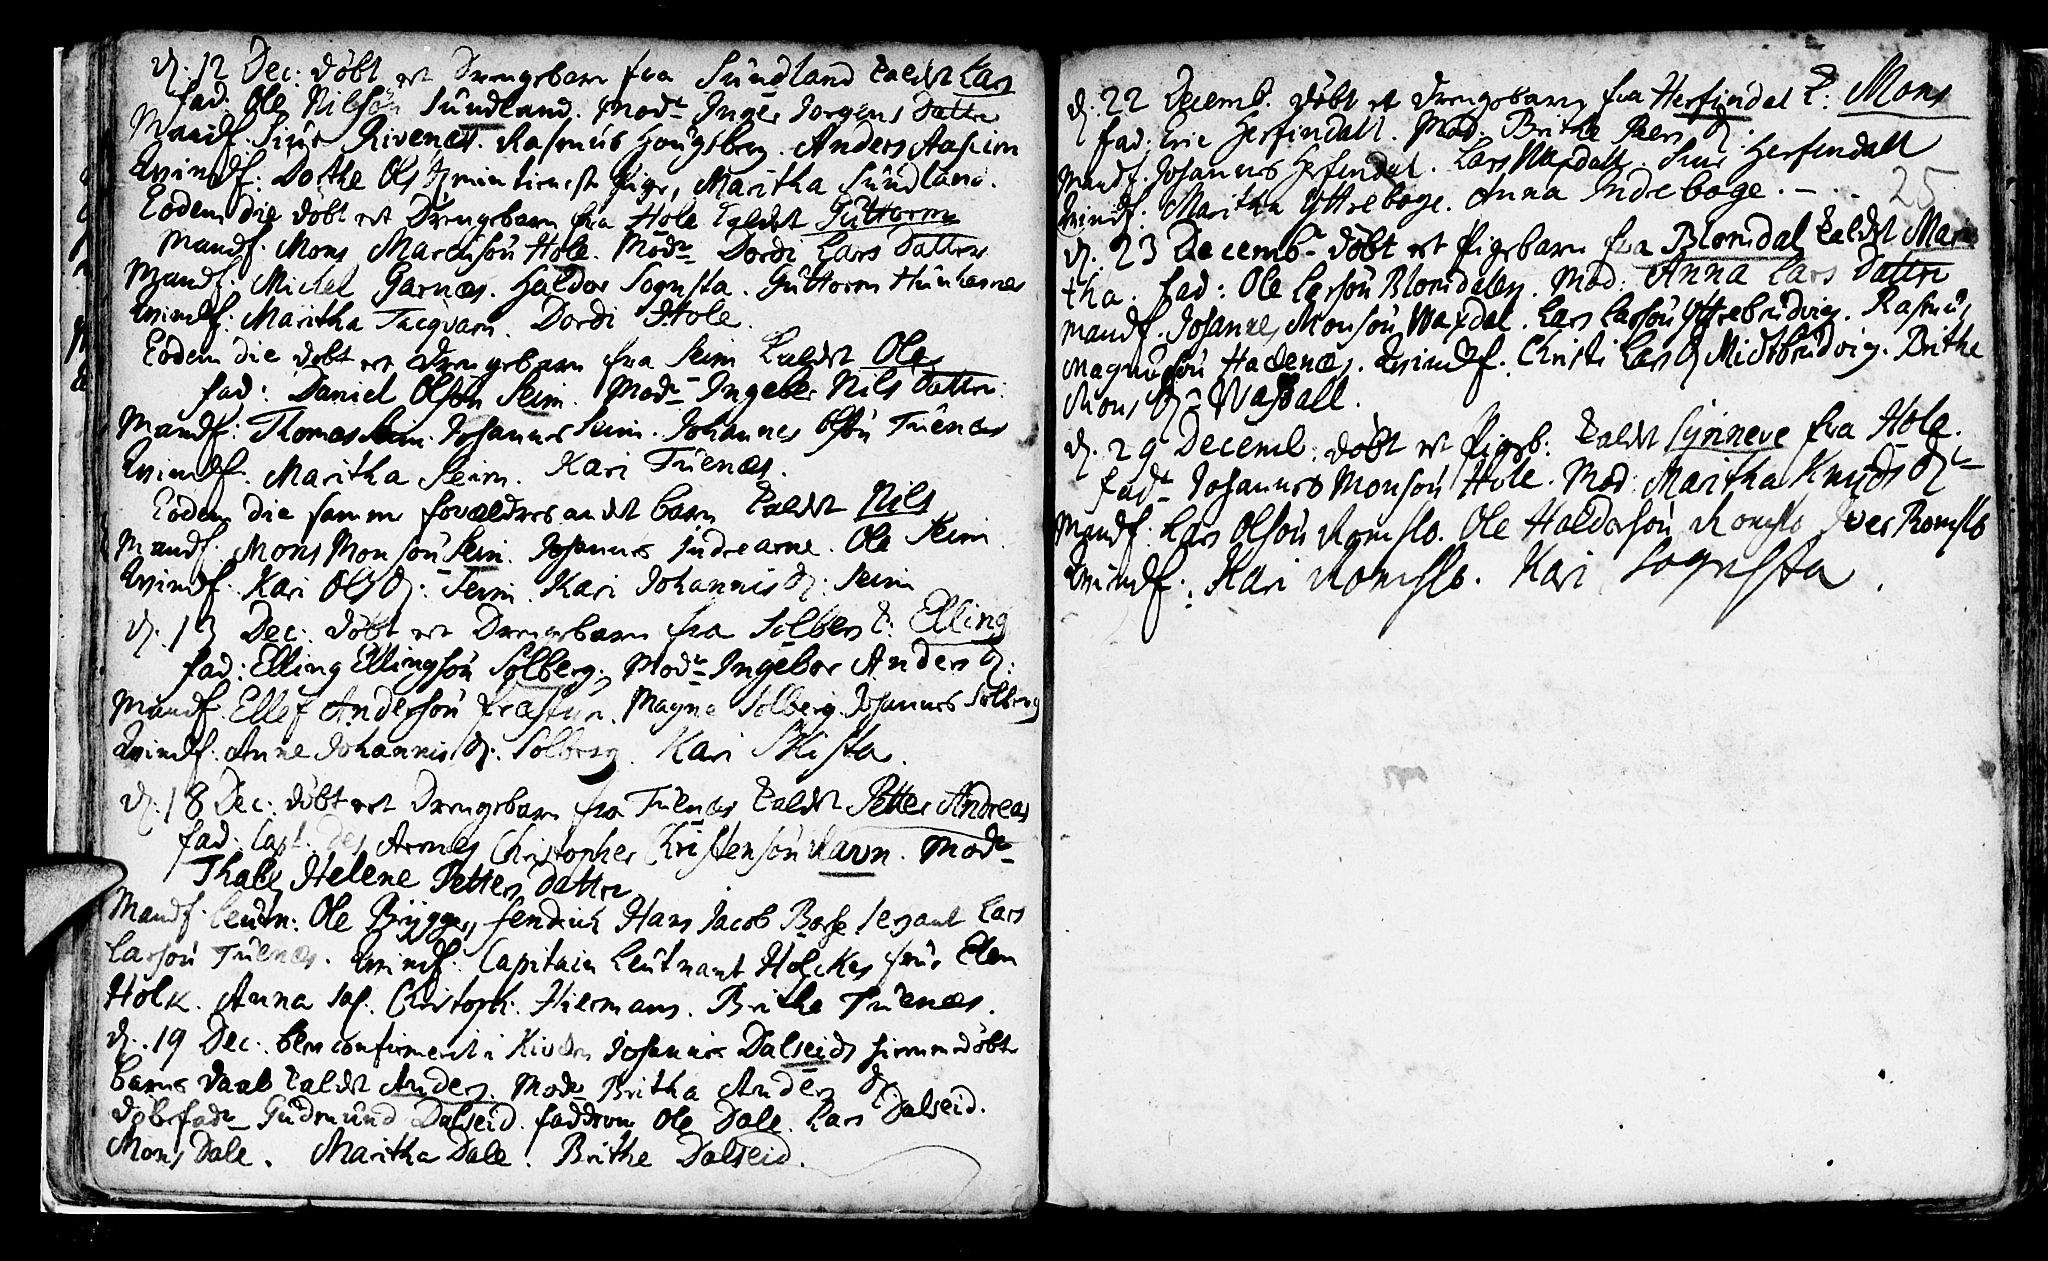 d. 12 Dec: döbt et Drengebarn fra Sundland kaldet Lars
fad. Ole Nilsön Sundland. Modr Inger Jorgens Datter
Mandf. Siur Rivenæs. Rasmus Hougsberg. Anders Aaseim
Qvindf: Dorthe Ols Maritha Sundland.
Eodem die döbt et Drengebarn fra Hole kaldet Guttorm
Mandf. Mons Hole. Modr Dordi Lars Datter
Mandf. Michel Garnæs. Haldor Sognsta. Guttorm
Qvindf: Maritha Tacqvam. Dordi Hole.
Eodem die döbt et drengebarn fra Seim kaldet Ole
fad: Daniel Olsön Seim. Modr Ingebor Nils Datter.
Mandf: Thomas Seim. Johannes Seim. Johannes Olsön Tuenæs
Qvindf. Maritha Seim. Kari Tuenæs.
Eodem die samme forældres andet barn kaldet Nils
Mandf: Mons Monsön Seim. Johannes Indrearne. Ole Seim.
Qvindf. Kari Ols D: Seim. Kari Johannis D. Seim
d. 13 Dec: döbt et Drengebarn fra Solberg k: Elling
fad: Elling Ellingsön Solberg. Modr Ingebor Anders D:
Mandf. Ellef Andersön Magne Solberg. Johannes Solberg
Qvindf. Anne Johannis D. Solberg. Kari
d. 18 Dec: döbt et Drengebarn fra Tuenæs kaldet Petter Andreas
fad: Capt. des Armes Christopher Christensön Ravn. Modr
Thale Helene Petters Datter
Mandf. Leutn: Ole Brügger, fendrich Hans Jacob Serjant Lars
Larsön Tuenæs. Qvindf: Capitain Leutnant Holckes frue Elen
Holk. Anna Sal. Christoph: Hiermans. Brithe Tuenæs.
d. 19 Dec. blev confirmeret i Kirken Johannes Dalseids hiemmedöbte
barns daab kaldet Anders. Modr Britha Anders D
döbefadr Gudmund Dalseid. faddere Ole Dale. Lars Dalseid.
Mons Dale. Maritha Dale. Brithe Dalseid.
25
d. 22 Decemb. döbt et drengebarn fra Herfindal k: Mons
fad: Eric Herfindall. Mod. Brithe Peers D:
Mandf. Johannes Herfindal. Lars Waxdall. Siur Herfindall
Qvindf. Maritha Yttreboge. Anna Indreboge.
d. 23 Decembr döbt et Pigebarn fra Blomdal kaldet Mari
tha. fad: Ole Larsön Blomdalen. Mod: Anna Lars Datter
Mandf. Johannes Monsön Waxdal. Lars Larsön Yttrebrudvig. Rasmus
Magnusön Hadenæs. Qvindf: Christi Lars D Midtbrudvig. Brithe
Mons Dr Waxdall.
d. 29 Decemb: döbt et Pigeb: kaldet Synneve fra Hole.
fadr Johannes Monsön Hole. Mod: Maritha Knuds Dr
Mandf. Lars Olsön Romslo. Ole Haldorsön Romslo Iver Romslo
Qvindf: Kari Romslo. Kari Sognsta.